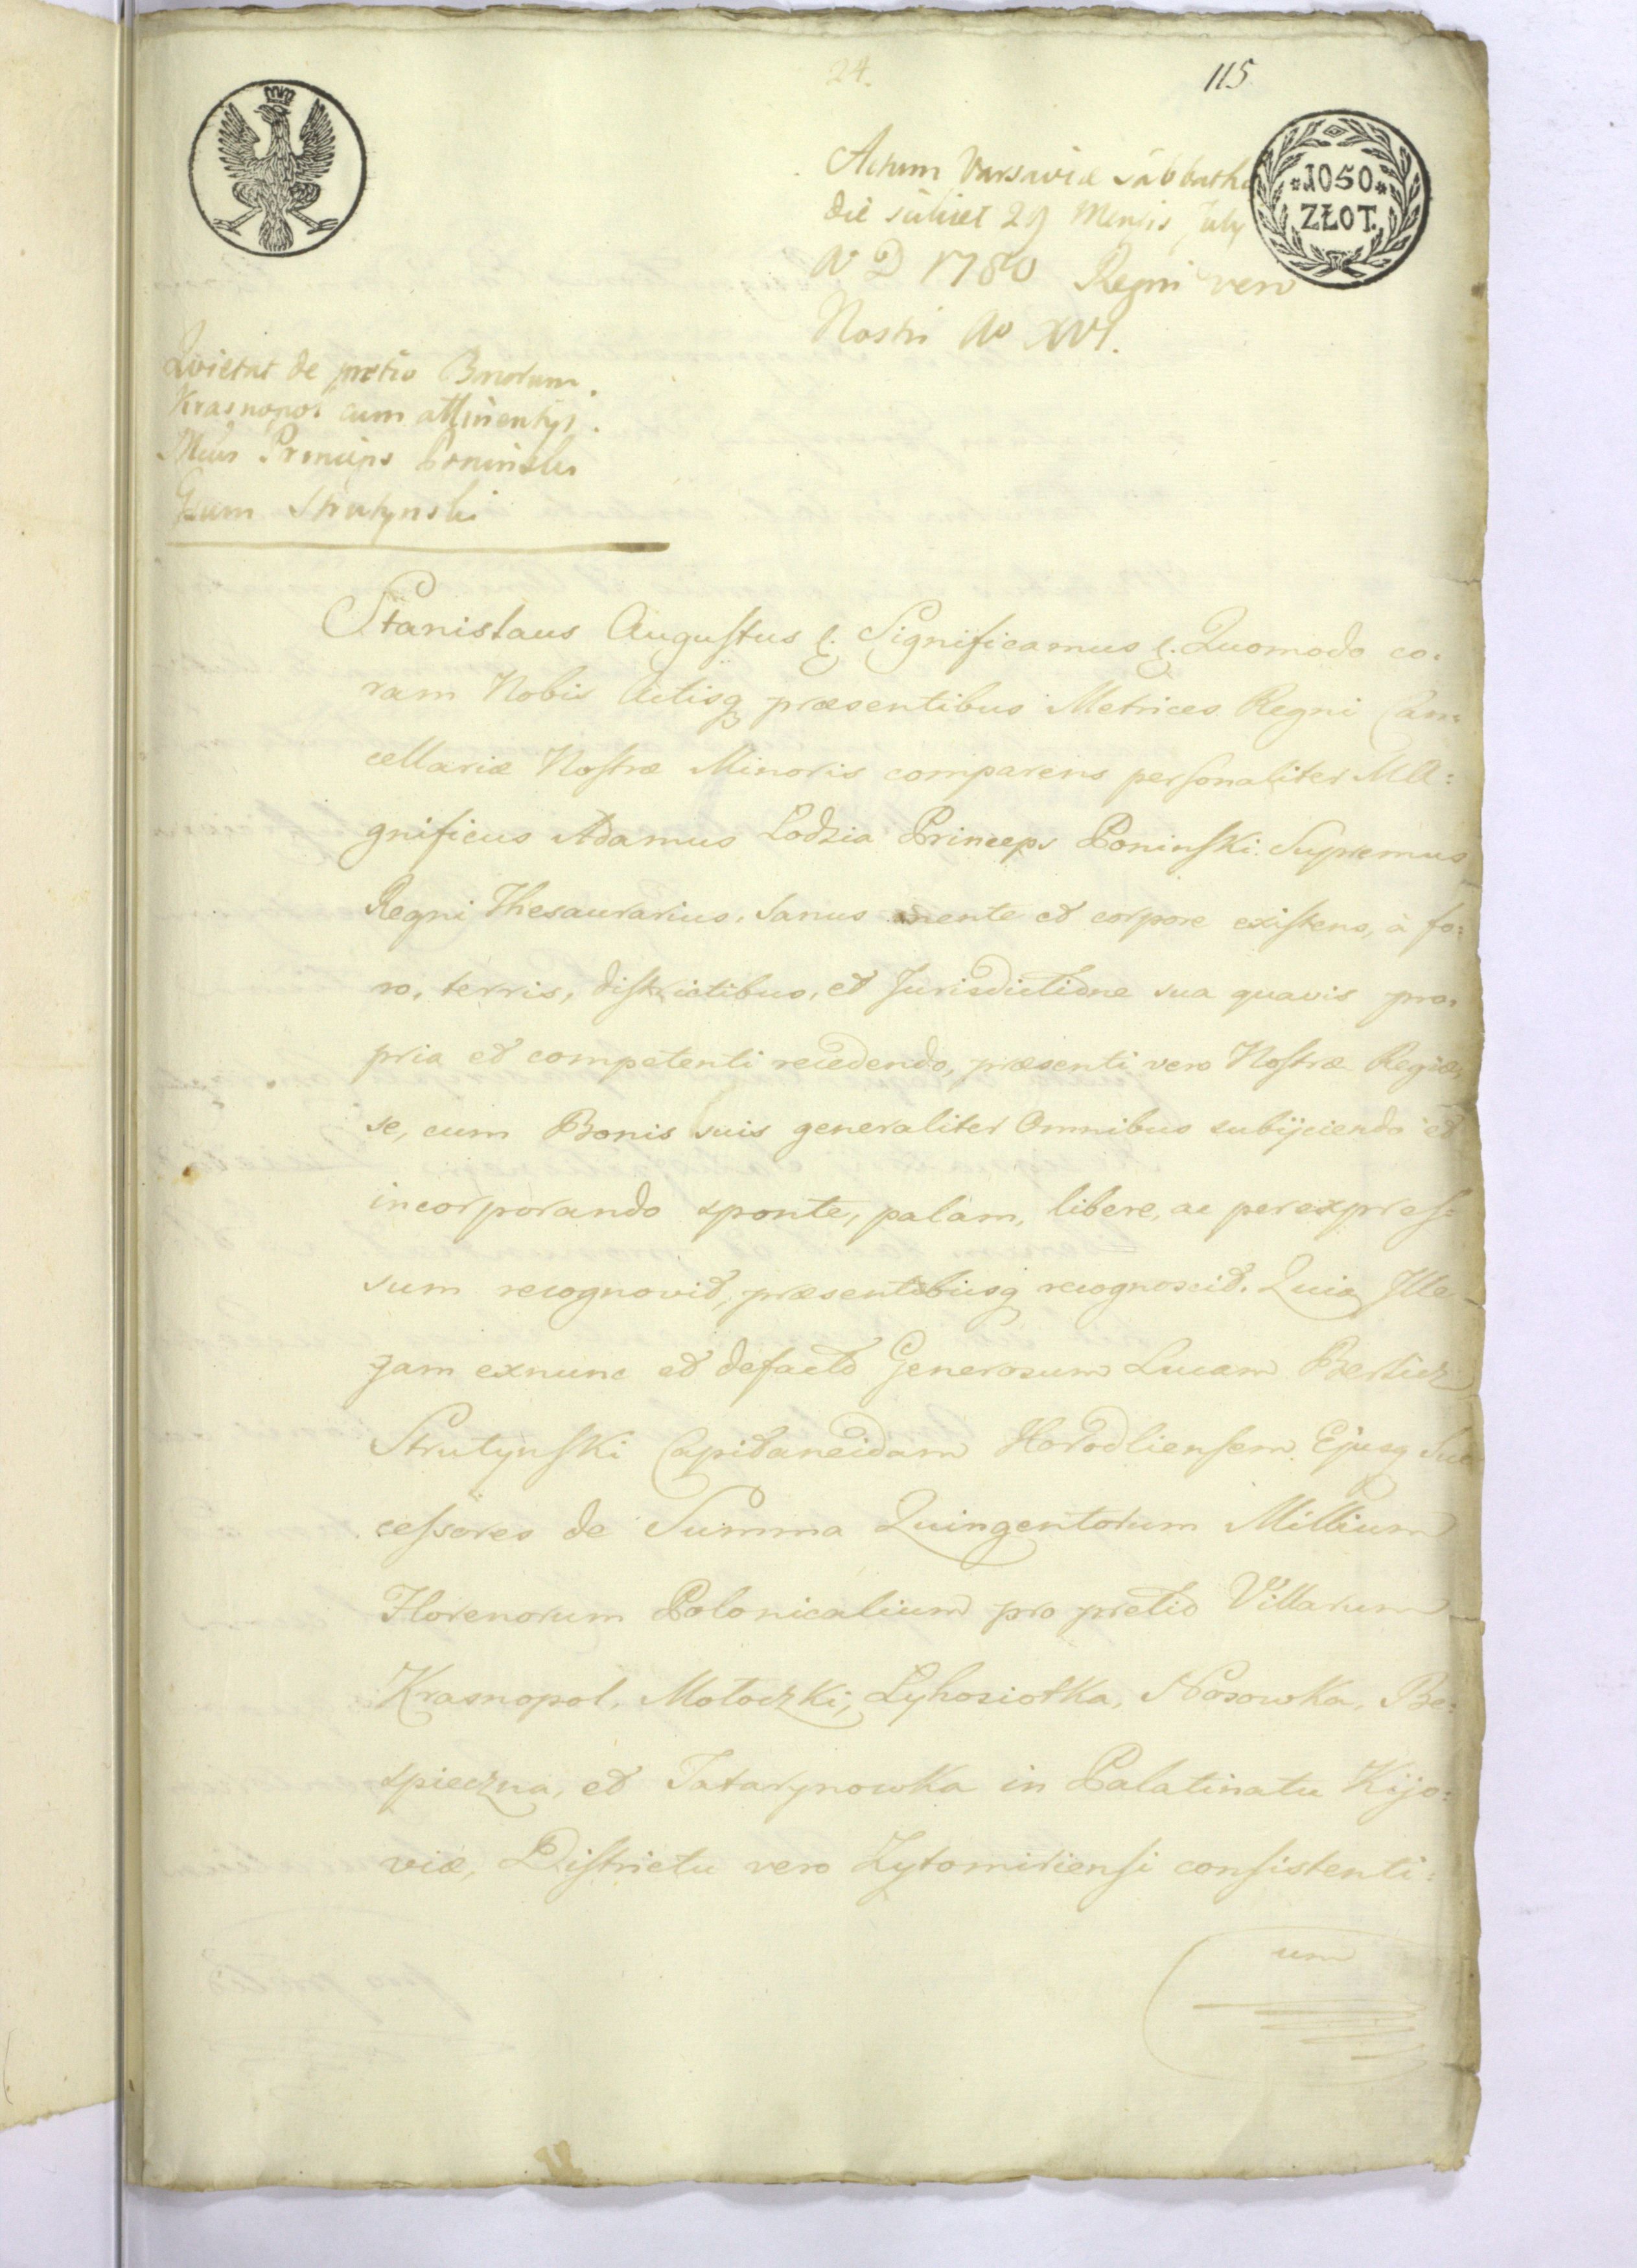 24.
115
Actum Varsaviæ sabbatho
die scilicet 29 Mensis July
A D 1780 Regni vero
Nostri Ao XVI.
*1050*
ZŁOT.
Quietat de pretio Bonorum
Krasnopol cum attinentijs.
Mcus Princeps Poninski
Gsum Strutynski
Stanislaus Augustus &. Significamus &. Quomodo co:
ram Nobis Actisq præsentibus Metrices Regni Can:
cellariæ Nostræ Minoris comparens personaliter Ma:
gnificus Adamus Lodzia Princeps Poninski Supremus
Regni Thesaurarius, sanus mente et corpore existens, à fo:
ro, terris, districtibus, et Jurisdictione sua quavis pro:
pria et competenti recedendo, præsenti vero Nostræ Regiæ,
se, cum Bonis suis generaliter Omnibus subijciendo et
incorporando sponte, palam, libere, ac perexpres:
sum recognovit, præsentibusq recognoscit. Quia Ille
jam exnunc et defacto Generosum Lucam Berlicz
Strutynski Capitaneidam Horodliensem Ejusq Suc
cessores de Summa Quingentorum Millium
Florenorum Polonicalium pro pretio Villarum
Krasnopol, Motoczki, Lyhosiołka, Nosowka, Be:
spieczna, et Tatarynowka in Palatinatu Kijo:
viæ, Districtu vero Zytomiriensi consistenti:
um